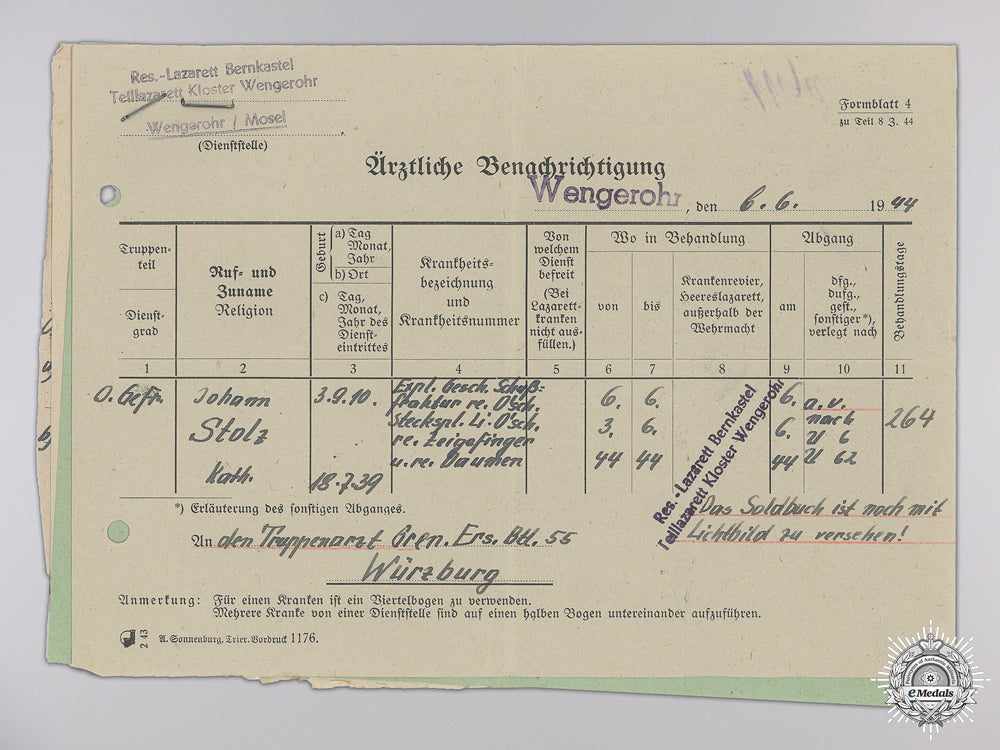 Res.-Lazarett Bernkastel
Teillazarett Kloster Wengerohr
Wengerohr / Mosel
(Dienststelle)
Formblatt 4
zu Teil 8 Z. 44
Ärztliche Benachrichtigung
Wengerohr, den 6. 6. 1944
Truppen-
teil
Dienst-
grad
Ruf- und
Zuname
Religion
Geburt
a) Tag
Monat,
Jahr
b) Ort
c) Tag,
Monat,
Jahr des
Dienst-
eintrittes
Krankheits-
bezeichnung
und
Krankheitsnummer
Von
welchem
Dienst
befreit
(Bei
Lazarett-
kranken
nicht aus-
füllen.)
Wo in Behandlung
von
bis
Krankenrevier,
Heereslazarett,
außerhalb der
Wehrmacht
Abgang
am
dfg.,
dufg.,
gest.,
sonstiger*),
verlegt nach
Behandlungstage
1 2 3 4 5 6 7 8 9 10 11
O. Gefr.
Johann
Stolz
Kath.
3.9.10.
18.7.39
Expl. Gesch. Schuß-
fraktur re. O'sch.
Stecksspl. Li. O'sch.
re. Zeigefinger
u. re. Daumen
6.
3.
44
6.
6.
44
Res.-Lazarett Bernkastel
Teillazarett Kloster Wengerohr
6.
6.
44
a.v.
nach
U 6
U 62
264
*) Erläuterung des sonstigen Abganges.
Das Soldbuch ist noch mit
Lichtbild zu versehen!
An den Truppenarzt Gren. Ers. Btl. 55
Würzburg
Anmerkung: Für einen Kranken ist ein Viertelbogen zu verwenden.
Mehrere Kranke von einer Dienststelle sind auf einen halben Bogen untereinander aufzuführen.
2 43
A. Sonnenburg, Trier. Vordruck 1176.
eMedals